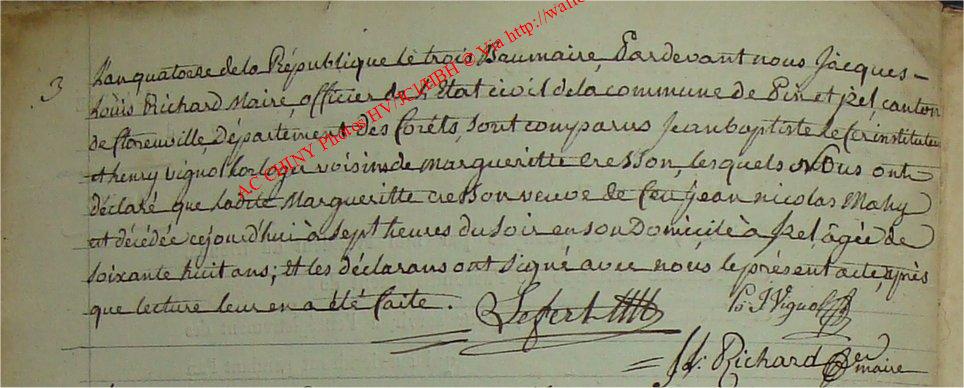 3
L'an quatorze de la République le trois Brumaire, Pardevant nous Jacques-
Louis Richard Maire, officier de l'Etat civil de la commune de Pin et Izel, canton
de florenville, Département des forêts, sont comparus Jean baptiste Lefer, instituteur
et henry vignol horloger voisins de Margueritte Cresson, lesquels Nous ont
déclaré que ladite Margueritte cresson veuve de feu Jean nicolas Mahy
est décédée cejourd'hui à sept heures du soir en son Domicile à Izel âgée de
soixante huit ans; Et les déclarans ont signé avec nous le présent acte, après
que lecture leur en a été faite.
Lefert
Vignol
Richard
maire
AC CHINY Photos HV/JCM/HBH © Via http://